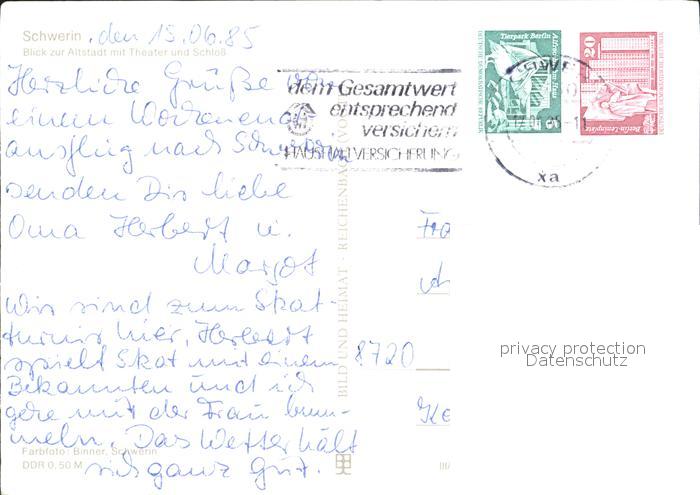 Schwerin, den 15.06.85
Blick zur Altstadt mit Theater und Schloß
Herzliche Grüße von
einem Wochenend-
ausflug nach Schwerin
senden Dir liebe
Oma Herbert u.
Margot
Wir sind zum Skat-
turnier hier, Herbert
spielt Skat mit einem
Bekannten und ich
gehe mit der Frau bum-
meln. Das Wetter hält
sich ganz gut.
Farbfoto: Binner, Schwerin
DDR 0,50 M
BILD UND HEIMAT · REICHENBACH
dem Gesamtwert
entsprechend
versichern
HAUSHALTVERSICHERUNG
Tierpark Berlin
DEUTSCHE DEMOKRATISCHE REPUBLIK
5
20
Berlin-Leninplatz
DEUTSCHE DEMOKRATISCHE REPUBLIK
SCHWE
xa
Fra
8720
privacy protection
Datenschutz